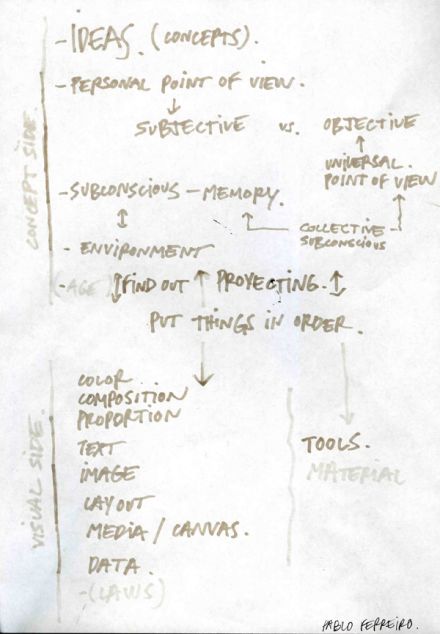 - IDEAS. (CONCEPTS).
- PERSONAL POINT OF VIEW.
SUBJECTIVE vs. OBJECTIVE
UNIVERSAL.
POINT OF VIEW
- SUBCONSCIOUS - MEMORY.
COLLECTIVE
SUBCONSCIOUS
- ENVIRONMENT
- (AGE) FIND OUT PROYECTING.
PUT THINGS IN ORDER.
CONCEPT SIDE.
COLOR
COMPOSITION
PROPORTION
TEXT
IMAGE
LAYOUT
MEDIA / CANVAS.
DATA.
- (LAWS)
TOOLS.
MATERIAL
VISUAL SIDE.
PABLO FERREIRO.